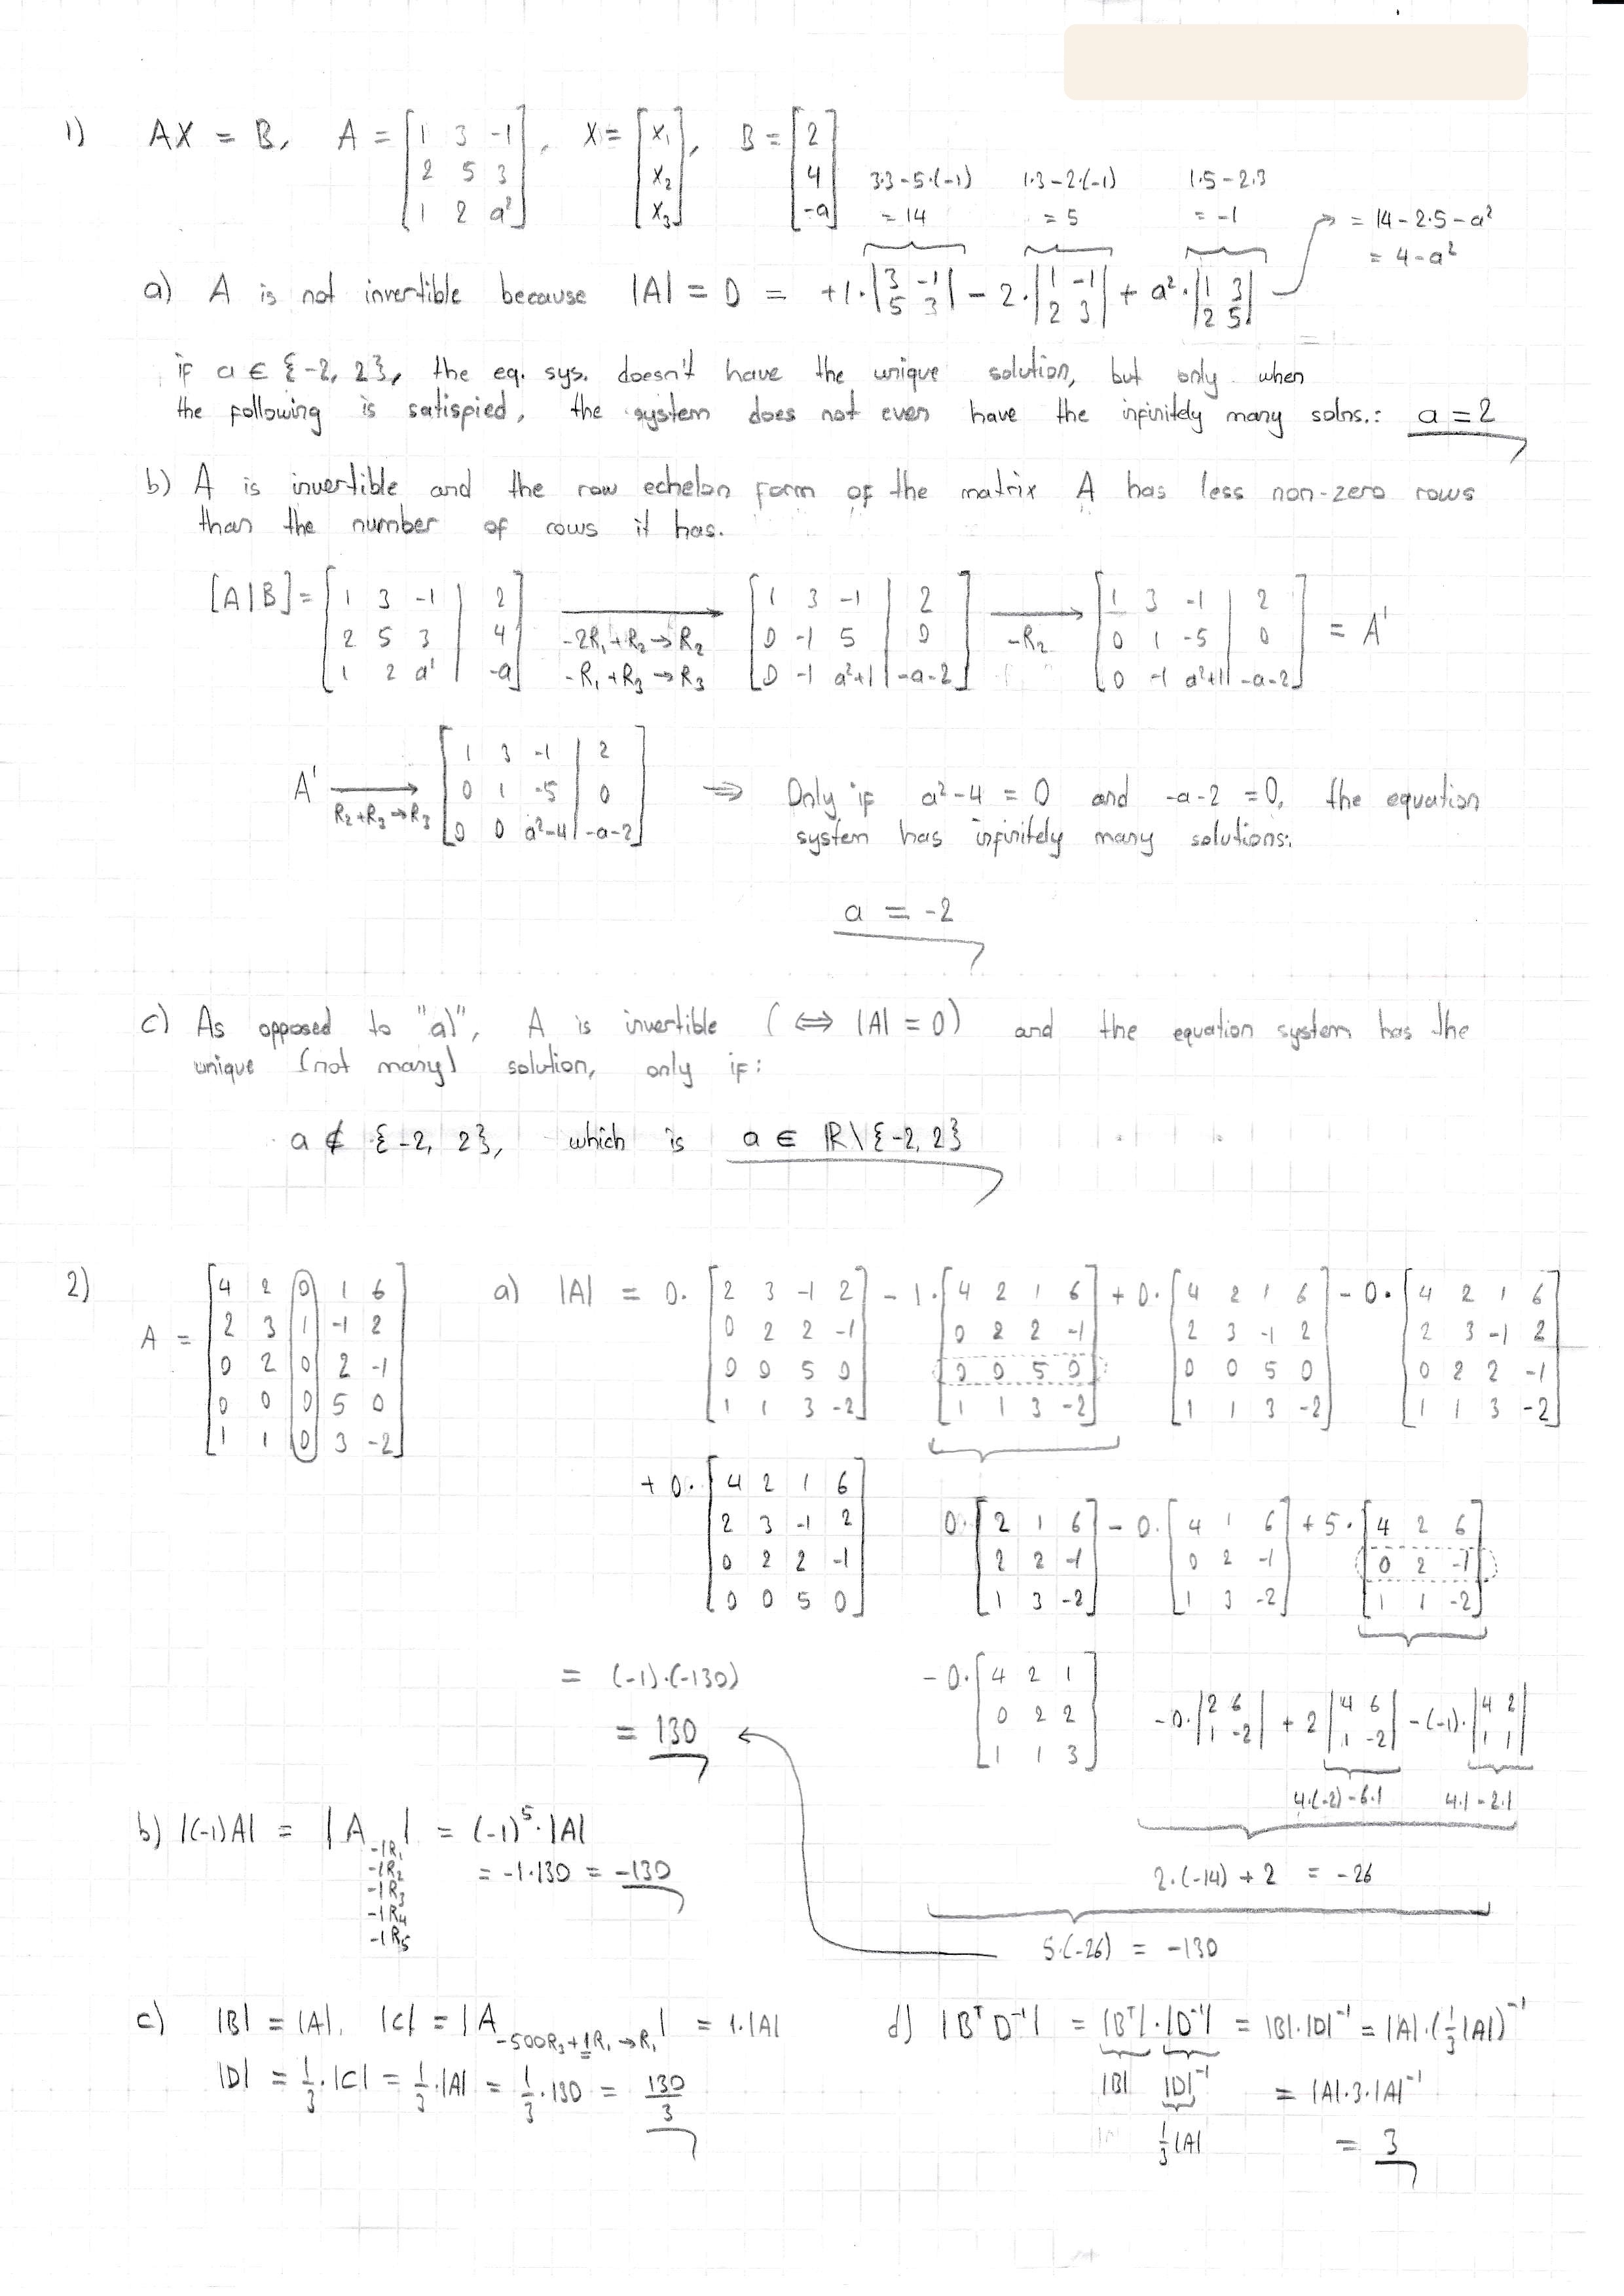 1) AX = B, A = [1 3 -1; 2 5 3; 1 2 a²], X = [x₁; x₂; x₃], B = [2; 4; -a]
3·3-5·(-1) = 14   1·3-2·(-1) = 5   1·5-2·3 = -1
a) A is not invertible because |A| = 0 = +1·|3 -1; 5 3| - 2·|1 -1; 2 3| + a²·|1 3; 2 5| → = 14-2·5-a²
= 4-a²
if a ∈ {-2, 2}, the eq. sys. doesn't have the unique solution, but only when
the following is satispied, the system does not even have the infinitely many solns.: a = 2
b) A is invertible and the row echelon form of the matrix A has less non-zero rows
than the number of rows it has.
[A|B] = [1 3 -1 | 2; 2 5 3 | 4; 1 2 a² | -a] → -2R₁+R₂→R₂ -R₁+R₃→R₃ [1 3 -1 | 2; 0 -1 5 | 0; 0 -1 a²+1 | -a-2] → -R₂ [1 3 -1 | 2; 0 1 -5 | 0; 0 -1 a²+1 | -a-2] = A'
A' → R₂+R₃→R₃ [1 3 -1 | 2; 0 1 -5 | 0; 0 0 a²-4 | -a-2] ⇒ Only if a²-4 = 0 and -a-2 = 0, the equation
system has infinitely many solutions:
a = -2
c) As opposed to "a)", A is invertible (⇔ |A| = 0) and the equation system has the
unique (not many) solution, only if:
a ∉ {-2, 2}, which is a ∈ ℝ\{-2, 2}
2) A = [4 2 0 1 6; 2 3 1 -1 2; 0 2 0 2 -1; 0 0 0 5 0; 1 1 0 3 -2]
a) |A| = 0·[2 3 -1 2; 0 2 2 -1; 0 0 5 0; 1 1 3 -2] - 1·[4 2 1 6; 0 2 2 -1; 0 0 5 0; 1 1 3 -2] + 0·[4 2 1 6; 2 3 -1 2; 0 0 5 0; 1 1 3 -2] - 0·[4 2 1 6; 2 3 -1 2; 0 2 2 -1; 1 1 3 -2]
+ 0·[4 2 1 6; 2 3 -1 2; 0 2 2 -1; 0 0 5 0]
0·[2 1 6; 2 2 -1; 1 3 -2] - 0·[4 1 6; 0 2 -1; 1 3 -2] + 5·[4 2 6; 0 2 -1; 1 1 -2]
- 0·[4 2 1; 0 2 2; 1 1 3]
-0·|2 6; 1 -2| + 2|4 6; 1 -2| - (-1)·|4 2; 1 1|
4·(-2)-6·1   4·1-2·1
2·(-14)+2 = -26
5·(-26) = -130
= (-1)·(-130)
= 130
b) |(-1)A| = |A -1R₁ -1R₂ -1R₃ -1R₄ -1R₅| = (-1)⁵·|A|
= -1·130 = -130
c) |B| = |A|, |C| = |A -500R₃+1R₁→R₁| = 1·|A|
|D| = 1/3·|C| = 1/3·|A| = 1/3·130 = 130/3
d) |BᵀD⁻¹| = |Bᵀ|·|D⁻¹| = |B|·|D|⁻¹ = |A|·(1/3|A|)⁻¹
|B| |D|⁻¹ = |A|·3·|A|⁻¹
1/3|A| = 3